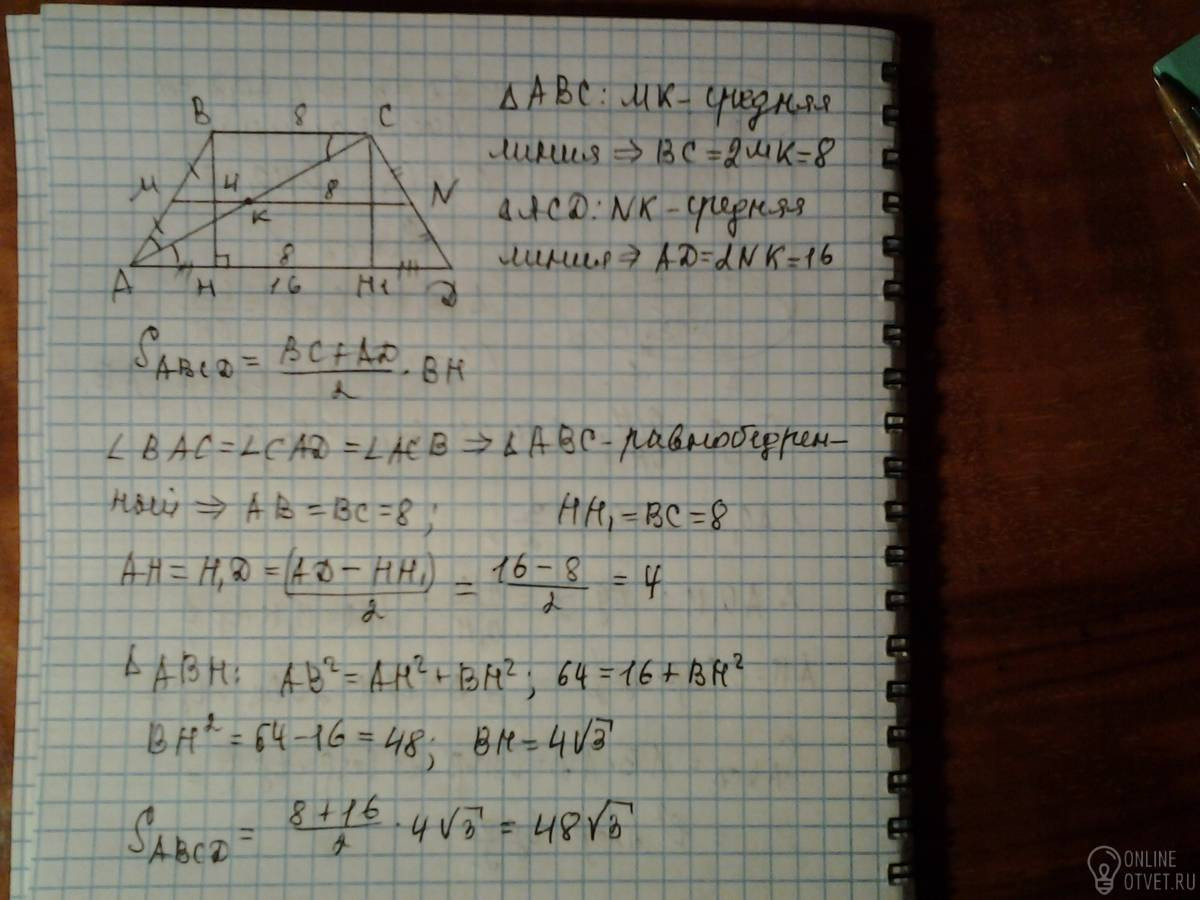 B 8 C
M 4 8 N
K
8
A H 16 H₁ D
Δ ABC: MK – средняя
линия ⇒ BC = 2MK = 8
Δ ACD: NK – средняя
линия ⇒ AD = 2NK = 16
S_ABCD = (BC + AD)/2 · BH
∠BAC = ∠CAD = ∠ACB ⇒ Δ ABC – равнобедрен–
ный ⇒ AB = BC = 8; HH₁ = BC = 8
AH = H₁D = (AD – HH₁)/2 = (16 – 8)/2 = 4
Δ ABH: AB² = AH² + BH²; 64 = 16 + BH²
BH² = 64 – 16 = 48; BH = 4√3
S_ABCD = (8 + 16)/2 · 4√3 = 48√3
ONLINE
OTVET.RU